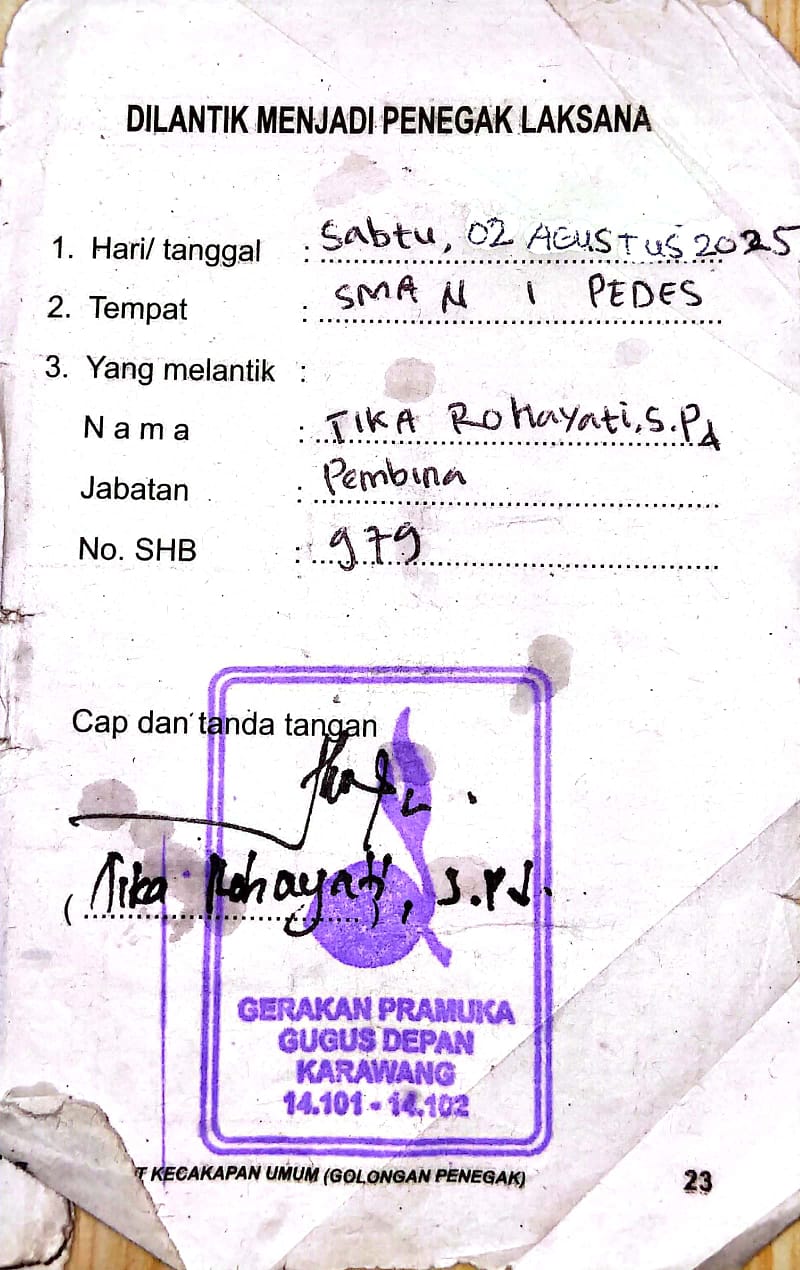 DILANTIK MENJADI PENEGAK LAKSANA
1. Hari/ tanggal : Sabtu, 02 AGUSTUS 2025
2. Tempat : SMA N 1 PEDES
3. Yang melantik :
N a m a : TIKA Rohayati, S.Pd
Jabatan : Pembina
No. SHB : 979
Cap dan tanda tangan
( Tika Rohayati, S.Pd.
GERAKAN PRAMUKA
GUGUS DEPAN
KARAWANG
14.101 - 14.102
T KECAKAPAN UMUM (GOLONGAN PENEGAK) 23